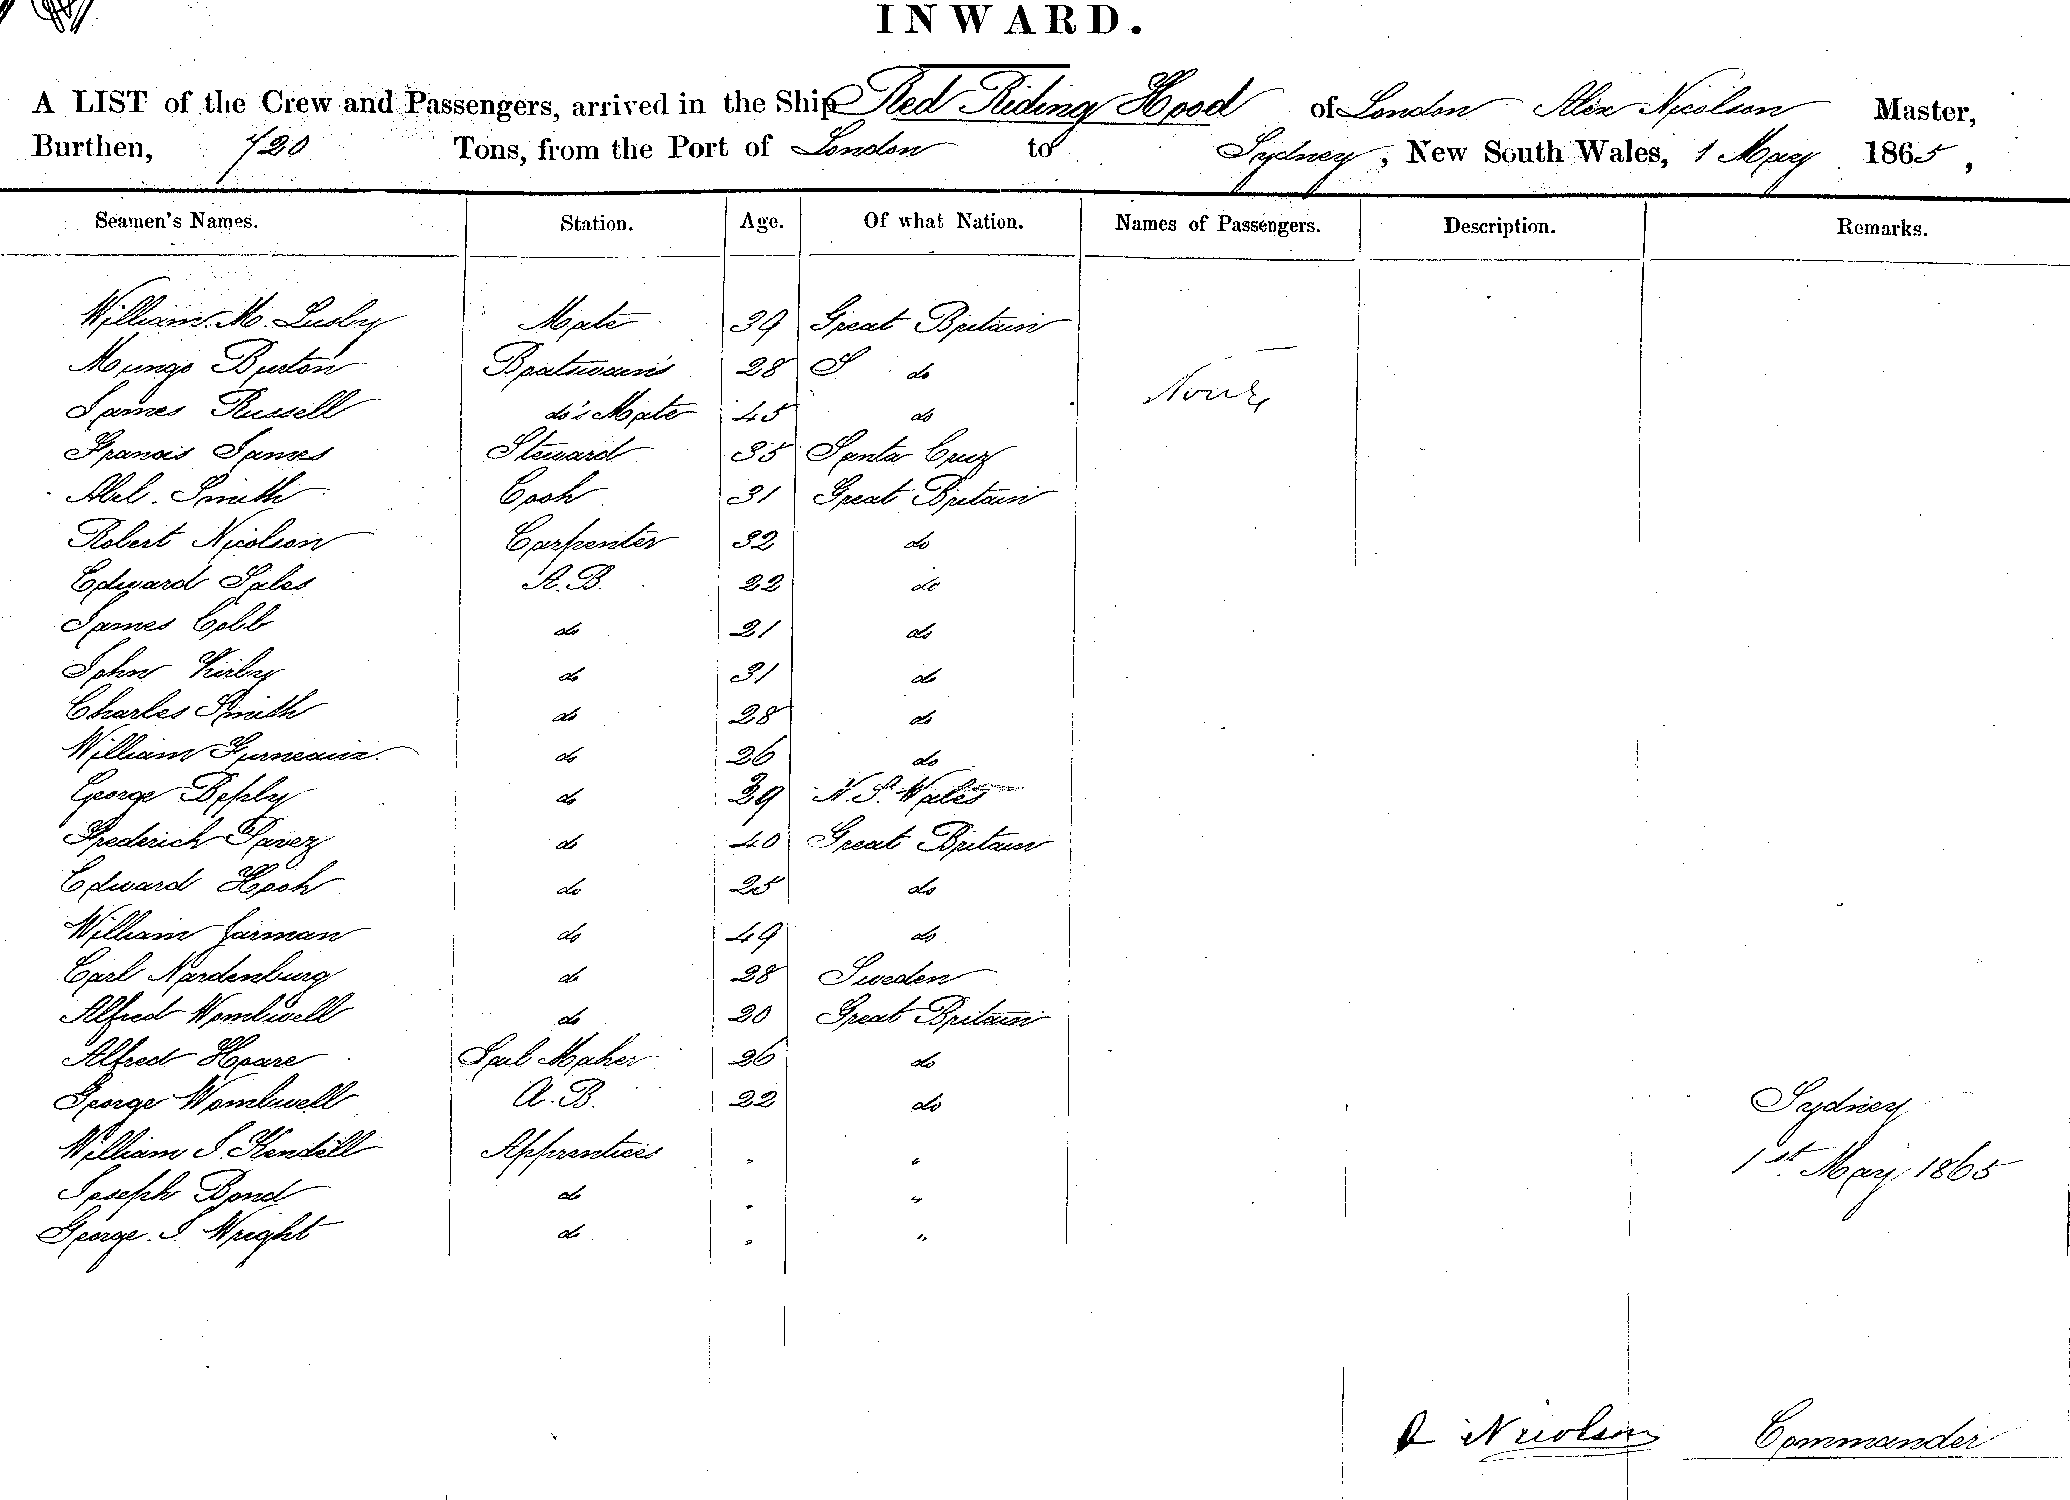 INWARD.
A LIST of the Crew and Passengers, arrived in the Ship Red Riding Hood of London Alex Nicolson Master,
Burthen, 720 Tons, from the Port of London to Sydney, New South Wales, 1 May 1865,
Seamen's Names. Station. Age. Of what Nation. Names of Passengers. Description. Remarks.
William M. Lusby Mate 39 Great Britain
Mungo Burton Boatswain's 28 do
James Russell do's Mate 45 do
None
Francis James Steward 35 Santa Cruz
Abel Smith Cook 31 Great Britain
Robert Nicolson Carpenter 32 do
Edward Sales A.B. 22 do
James Cobb do 21 do
John Kirby do 31 do
Charles Smith do 28 do
William Furneaux do 26 do
George Deply do 39 N.S. Wales
Frederick Pavez do 40 Great Britain
Edward Hook do 25 do
William Jarman do 49 do
Carl Nardenburg do 28 Sweden
Alfred Wombwell do 20 Great Britain
Alfred Hoare Sail Maker 26 do
George Wombwell A.B. 22 do Sydney
William J. Kendall Apprentices " " 1st May 1865
Joseph Bond do " "
George J. Wright do " "
A Nicolson Commander